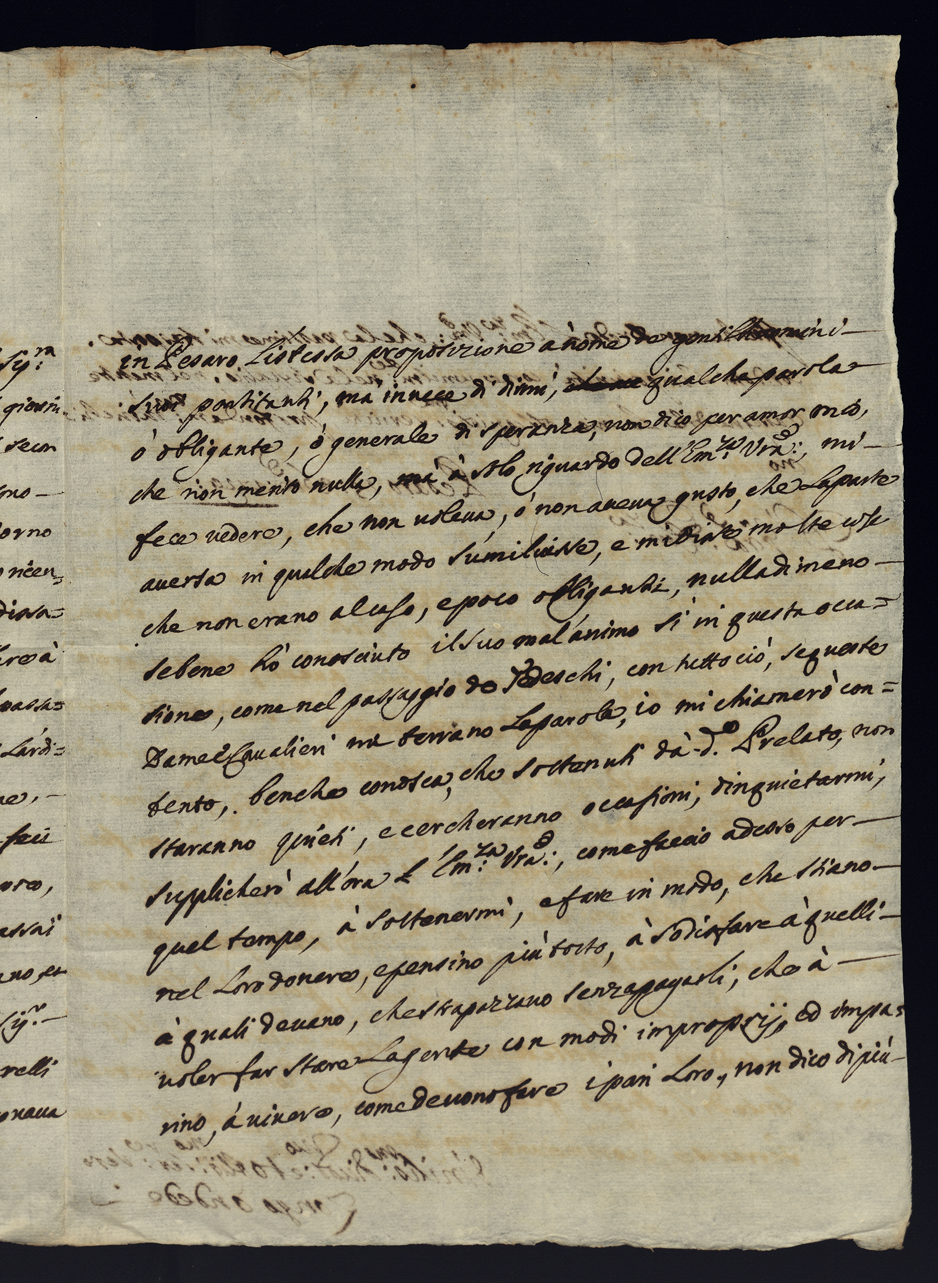 in Pesaro L'istessa proposizione a nome de gentilhuomini
suoi postitanti, ma invece di dirmi, qualche parola
ò obligante, ò generale di speranza, non dico per amor mio,
che non merito nulla, mà à solo riguardo dell'Em.za Vra:, mi
fece vedere, che non voleva, ò non aveva gusto, che La parte
aversa in qualche modo s'umiliasse, e mi disse molte cose
che non erano al caso, e poco obliganti, nulladimeno
sebene hò conosciuto il suo mal'animo sì in questa occa=
sione, come nel passaggio de Tedeschi, con tutto ciò, se queste
Dame e Cavalieri mi terrano La parola, io mi chiamerò con=
tento, benche conosca, che sostenuti dà d.o Prelato, non
staranno quieti, e cercheranno occasioni, d'inquietarmi,
supplicherò all'ora L'Em.za Vra:, come faccio adesso per
quel tempo, à sostenermi, e fare in modo, che stiano
nel Loro dovere, e pensino più tosto, à sodisfare à quelli
à quali devano, che strapazzano senza pagarli, che à
voler far stare La gente con modi improprij, ed impa=
rino, à vivere, come devono fare i pari Loro, non dico di più
Sig:ra
giorni
secon
gno
iorno
dissa=
ere à
passa=
Lardi=
ne,
assai
Sig.r
relli
onava